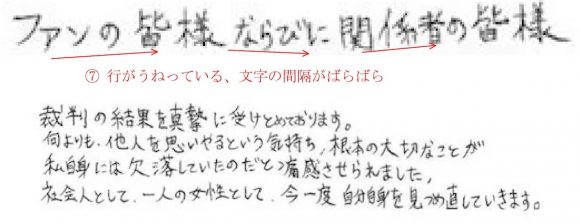 ファンの皆様 ならびに 関係者の皆様
⑦ 行がうねっている、文字の間隔がばらばら
裁判の結果を真摯に受けとめております。
何よりも、他人を思いやるという気持ち、根本の大切なことが
私自身には欠落していたのだと痛感させられました。
社会人として、一人の女性として、今一度自分自身を見つめ直していきます。